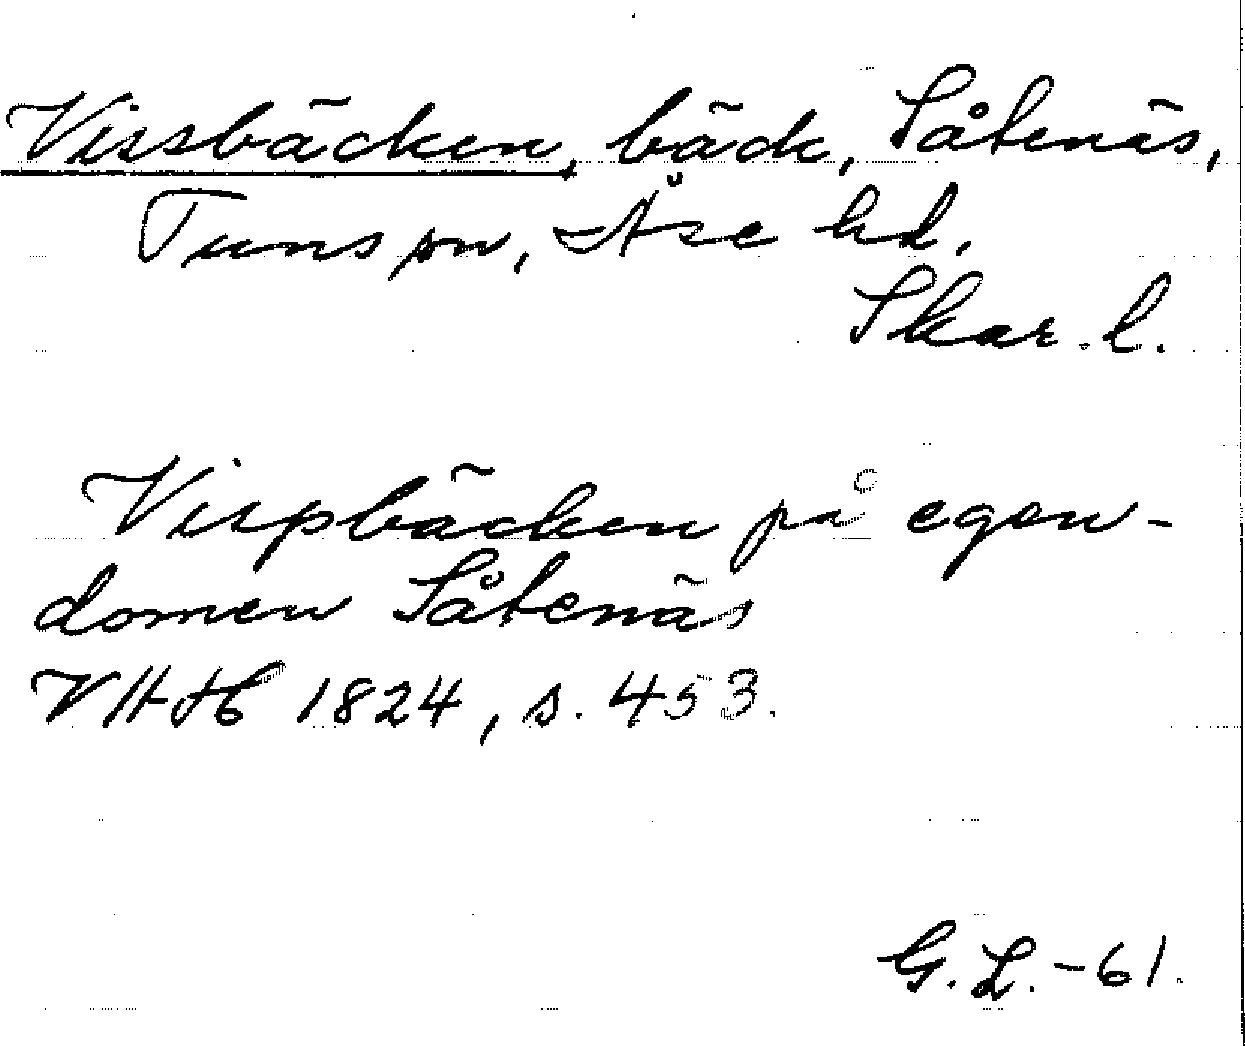 Vissbäcken, bäck, Såtenäs,
Tuns sn, Åse hd,
Skar. l.
Vispbäcken på egen-
domen Såtenäs
VHH 1824, s. 453.
G. L. -61.